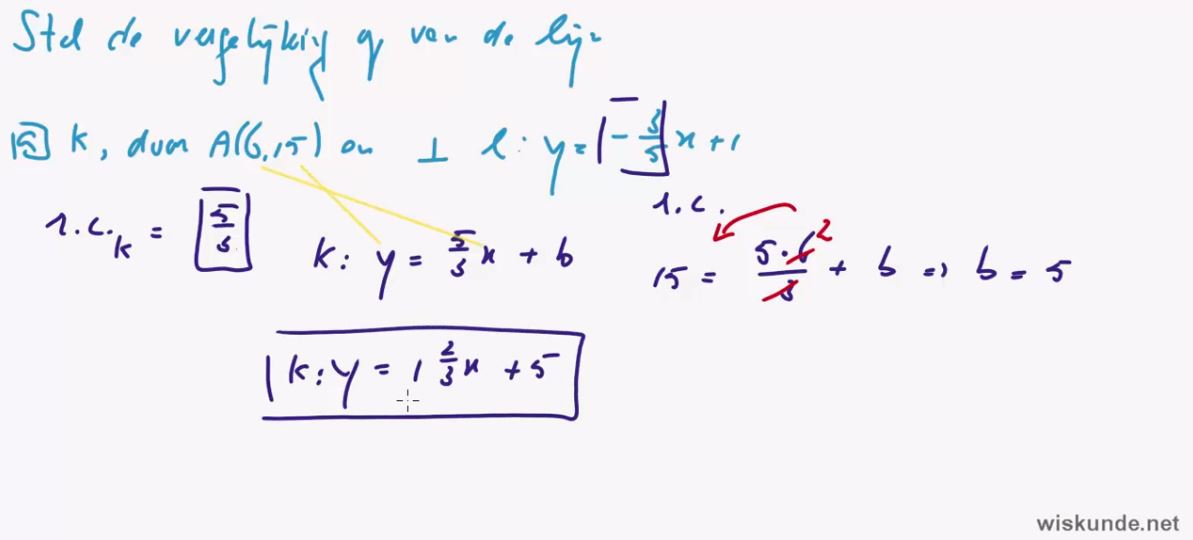 Stel de vergelijking op van de lijn
k, door A(6,15) en ⊥ l: y = -3/5 x + 1
r.c.
r.c.k = 5/3
k: y = 5/3 x + b
15 = 5·6 2/3 + b => b = 5
k: y = 1 2/3 x + 5
wiskunde.net